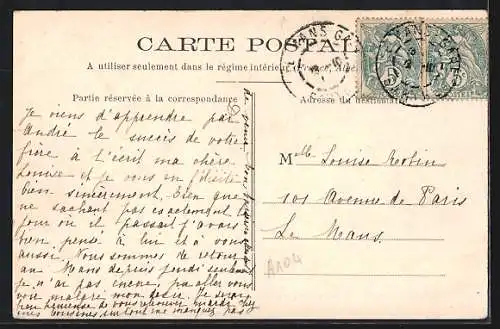 CARTE POSTALE
A utiliser seulement dans le régime intérieur
Partie réservée à la correspondance
Adresse du destinataire
Je viens d'apprendre par
André le succès de votre
frère à l'écrit ma chère
Louise et je vous en félicite
bien sincèrement. Bien que
ne sachant pas exactement le
jour où il passait j'avais
bien pensé à lui et à vous
aussi. Nous sommes de retour
au Mans depuis jeudi seulement
je n'ai pas encore pu aller vous
voir malgré mon désir. Je serai
bien heureuse de vous retrouver mardi chez
mes cousines surtout ne manquez pas
de venir
Melle Louise
101 Avenue de Paris
Le Mans
A104
LE MANS GARE
5
5